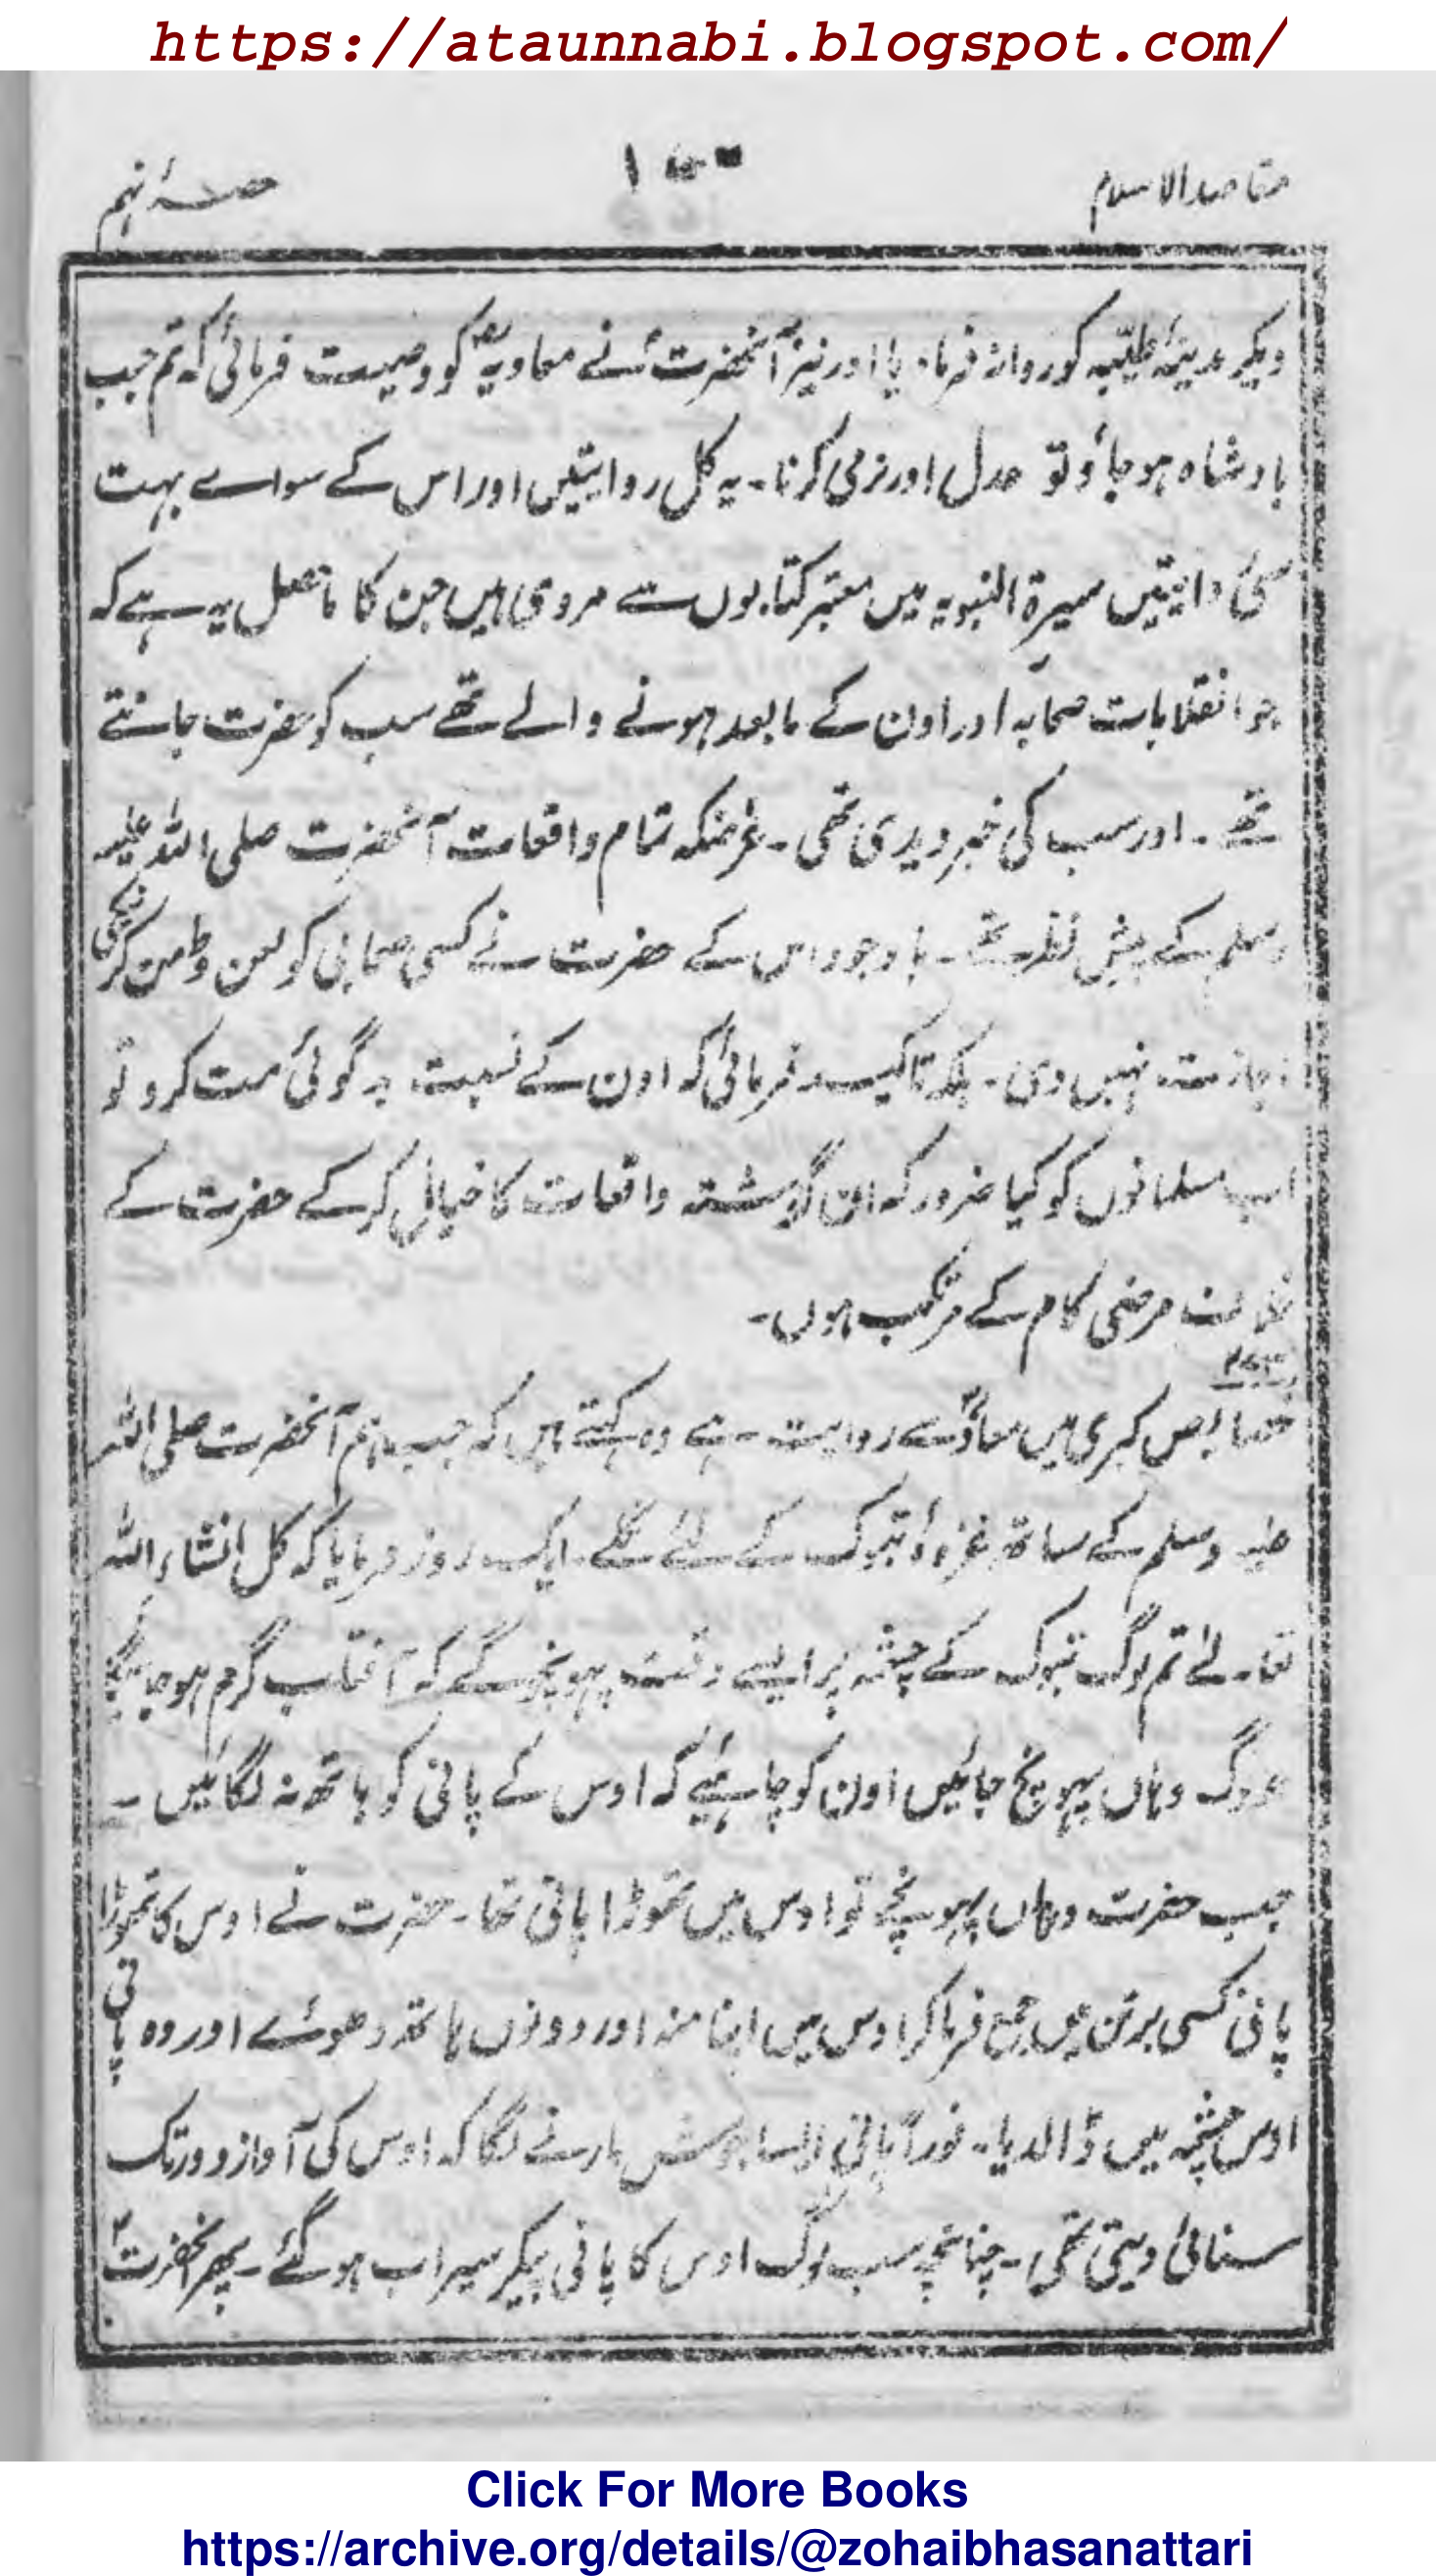 https://ataunnabi.blogspot.com/
مقاصد الاسلام
حصۂ نہم
دیکر مدینۂ طیّبہ کو روانہ فرما دیا اور نیز آنحضرتؐ نے معاویہؓ کو وصیت فرمائی کہ تم جب
بادشاہ ہو جاؤ تو عدل اور نرمی کرنا۔ یہ کل روایتیں اور اس کے سواے بہت
سی روایتیں سیرۃ النبویہ میں معتبر کتابوں سے مروی ہیں جن کا ماحصل یہ ہے کہ
جو انقلابات صحابہ اور اون کے مابعد ہونے والے تھے سب کو حضرت جانتے
تھے۔ اور سب کی خبر دیدی تھی۔ غرضکہ تمام واقعات آنحضرت صلی اللہ علیہ
وسلم کے پیش نظر تھے۔ باوجود اس کے حضرت نے کسی صحابی کو لعن وطعن کرنیکی
اجازت نہیں دی۔ بلکہ تاکید فرمائی کہ اون کے نسبت بدگوئی مت کرو تو
اب مسلمانوں کو کیا ضرور کہ ان گوشتہ واقعات کا خیال کرکے حضرت کے
خلاف مرضی کام کے مرتکب ہوں۔
خصایص کبری میں معاذؓ سے روایت ہے وہ کہتے ہیں کہ جب ہم آنحضرت صلی اللہ
علیہ وسلم کے ساتھ غزوۂ تبوک کے لئے نکلے۔ ایک روز فرمایا کہ کل انشاء اللہ
تعالےٰ تم لوگ تبوک کے چشمہ پر ایسے وقت پہونچوگے کہ آفتاب گرم ہو جائیگا
جو لوگ وہاں پہونچ جائیں اون کو چاہئیے کہ اوس کے پانی کو ہاتھ نہ لگائیں۔
جب حضرت وہاں پہونچے تو اوس میں تھوڑا پانی تھا۔ حضرت نے اوس کا تھوڑا
پانی کسی برتن میں جمع فرما کر اوس میں اپنا منہ اور دونوں ہاتھ دھوئے اور وہ پانی
اوس چشمہ میں ڈالدیا۔ فوراً پانی ایسا جوش مارنے لگا کہ اوس کی آواز دور تک
سنائی دیتی تھی۔ چنانچہ سب لوگ اوس کا پانی پیکر سیراب ہو گئے۔ پھر آنحضرتؐ
Click For More Books
https://archive.org/details/@zohaibhasanattari